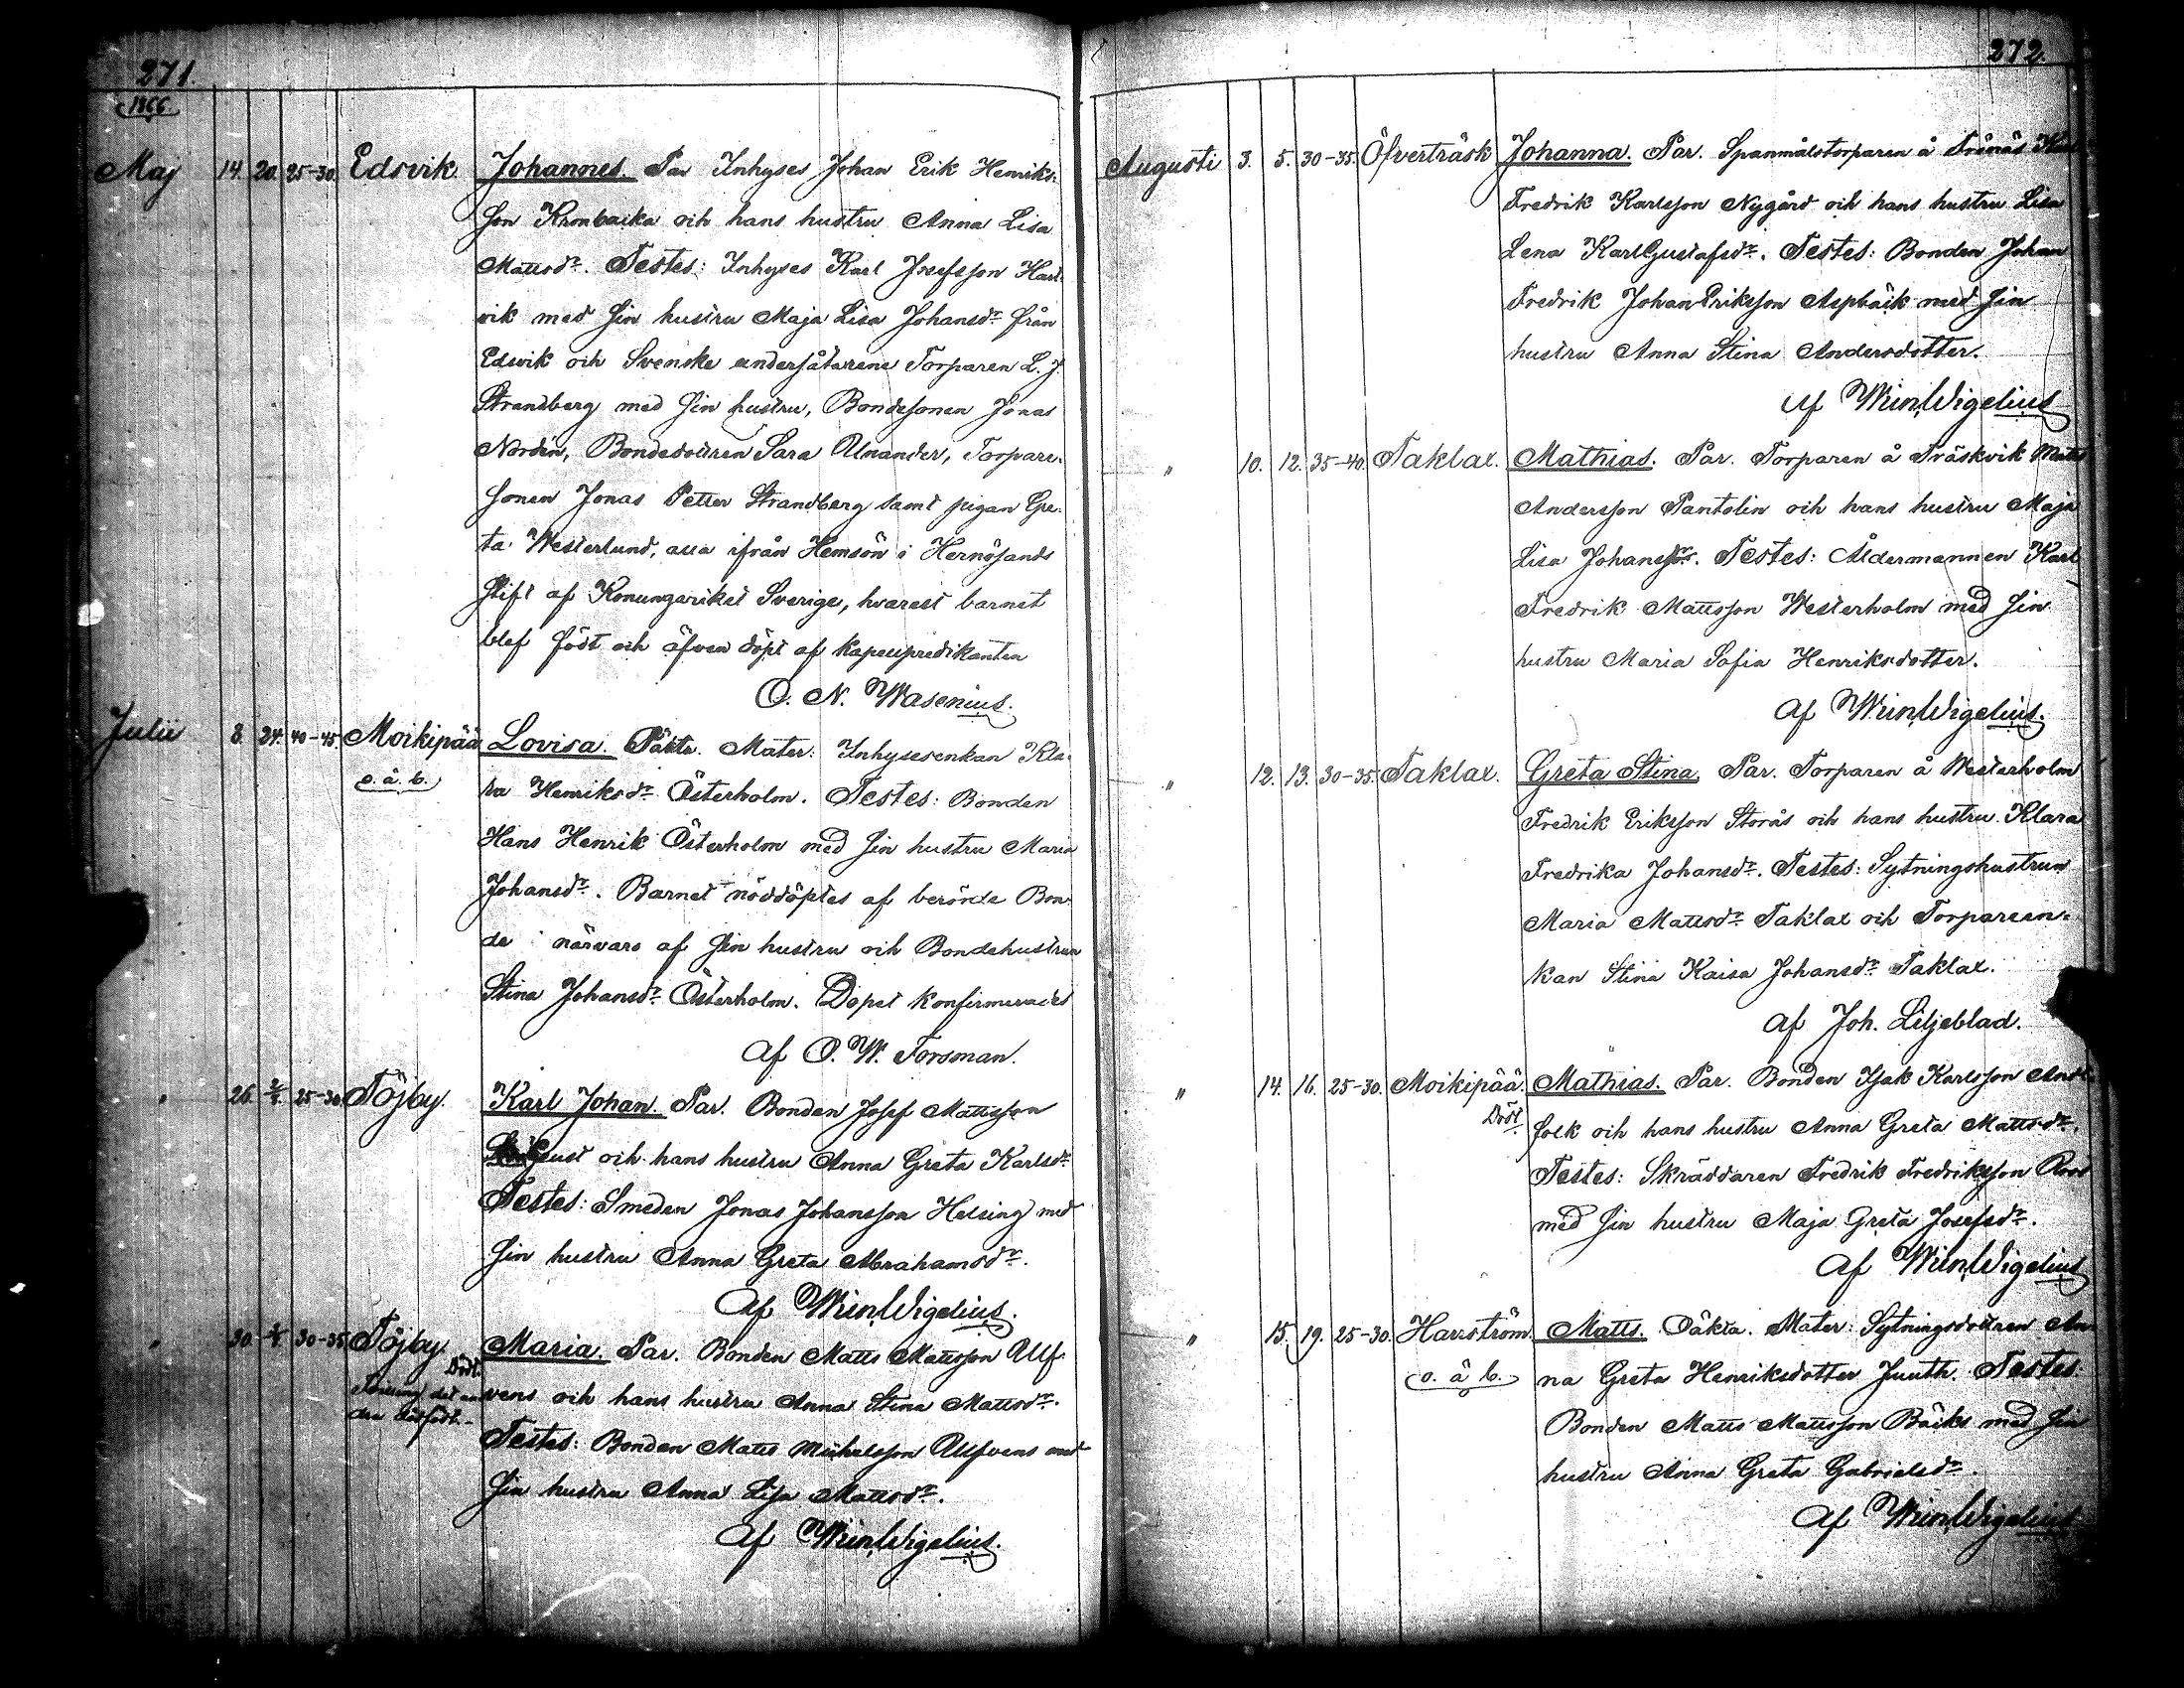 271.
1866.
Maj 14. 20. 25-30. Edsvik. Johannes. Par Inhyses Johan Erik Henriks-
son Kronbacka och hans hustru Anna Lisa
Mattsdr. Testes: Inhyses Karl Josefsson Hast-
vik med sin hustru Maja Lisa Johansdr från
Edsvik och Svenske undersåtarene Torparen L. J.
Strandberg med sin hustru, Bondesonen Jonas
Nordin, Bondedottren Sara Ulnander, Torpare-
sonen Jonas Petter Strandberg samt pigan Gre-
ta Westerlund, alla ifrån Hemsön i Hernösands
stift af Konungariket Sverige, hvarest barnet
blef född och äfven döpt af kapellpredikanten
O. N. Wasenius.
Julii 8. 24. 40-45 Moikipää Lovisa. Oäkta. Mater: Inhysesenkan Kla-
o. ä. b. ra Henriksdr Österholm. Testes: Bonden
Hans Henrik Österholm med sin hustru Maria
Johansdr. Barnet nöddöptes af berörde Bon-
de i närvaro af sin hustru och Bondehustrun
Stina Johansdr Österholm. Dopet konfirmerades
af O. W. Forsman.
" 26. 25-30 Töjby. Karl Johan. Par. Bonden Josef Mattsson
och hans hustru Anna Greta Karlsdr
Testes: Smeden Jonas Johansson Helsing med
sin hustru Anna Greta Abrahamsdr.
Af Wigelius.
" 30. 30-35 Töjby. Maria. Par. Bonden Matts Mattsson Ulf-
Död.
vens och hans hustru Anna Stina Mattsdr.
Tvilling, det an-
dra dödfödt.
Testes: Bonden Matts Michelsson Ulfvens med
sin hustru Anna Lisa Mattsdr.
Af Wigelius.
272.
Augusti 3. 5. 30-35. Öfverträsk Johanna. Par. Spanmålstorparen å Trånäs
Fredrik Karlsson Nygård och hans hustru Lisa
Lena Karl Gustafsdr. Testes: Bonden Johan
Fredrik Johan Eriksson Aspbäck med sin
hustru Anna Stina Andersdotter.
Af Wigelius
" 10. 12. 35-40. Taklax. Mathias. Par. Torparen å Träskvik Matts
Andersson Pantolin och hans hustru Maja
Lisa Johansdr. Testes: Åldermannen Karl
Fredrik Mattsson Westerholm med sin
hustru Maria Sofia Henriksdotter.
Af Wigelius.
" 12. 13. 30-35 Taklax. Greta Stina. Par. Torparen å Westerholm
Fredrik Eriksson Storås och hans hustru Klara
Fredrika Johansdr. Testes: Sytningshustrun
Maria Mattsdr Taklax och Torpareen-
kan Stina Kaisa Johansdr Taklax.
Af Joh. Liljeblad.
" 14. 16. 25-30. Moikipää. Mathias. Par. Bonden Isak Karlsson And-
Död. folk och hans hustru Anna Greta Mattsdr.
Testes: Skräddaren Fredrik Fredriksson Roos
med sin hustru Maja Greta Josefsdr.
Af Wigelius
" 15. 19. 25-30. Harrström. Matts. Oäkta. Mater: Sytningsdottren An-
o. ä b. na Greta Henriksdotter Juuth. Testes:
Bonden Matts Mattsson Bäcks med sin
hustru Anna Greta Gabrielsdr.
Af Wigelius